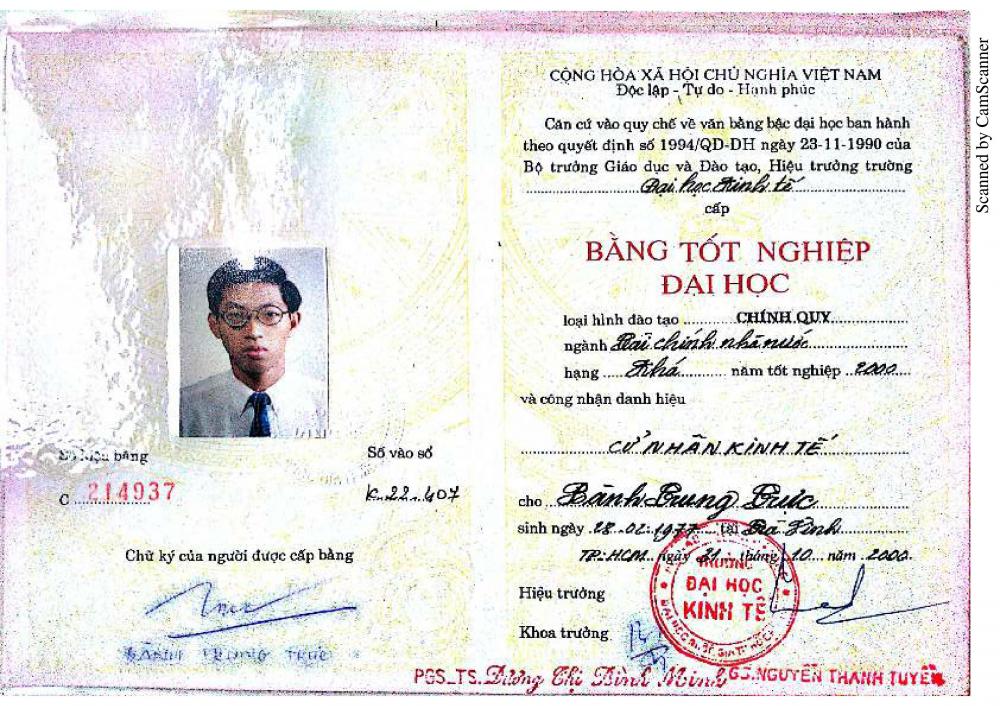 Số hiệu bằng
C 214937
Số vào sổ
K.22.407
Chữ ký của người được cấp bằng
BÀNH TRUNG TRỰC
CỘNG HÒA XÃ HỘI CHỦ NGHĨA VIỆT NAM
Độc lập - Tự do - Hạnh phúc
Căn cứ vào quy chế về văn bằng bậc đại học ban hành
theo quyết định số 1994/QD-DH ngày 23-11-1990 của
Bộ trưởng Giáo dục và Đào tạo, Hiệu trưởng trường
Đại học Kinh tế
cấp
BẰNG TỐT NGHIỆP
ĐẠI HỌC
loại hình đào tạo CHÍNH QUY
ngành Tài chính nhà nước
hạng Khá năm tốt nghiệp 2000
và công nhận danh hiệu
CỬ NHÂN KINH TẾ
cho Bành Trung Trực
sinh ngày 28.02.1977 tại
TP.HCM ngày 31 tháng 10 năm 2000
Hiệu trưởng
Khoa trưởng
TRƯỜNG
ĐẠI HỌC
KINH TẾ
PGS_TS. Dương Thị Bình Minh
GS.NGUYỄN THANH TUYỀN
Scanned by CamScanner